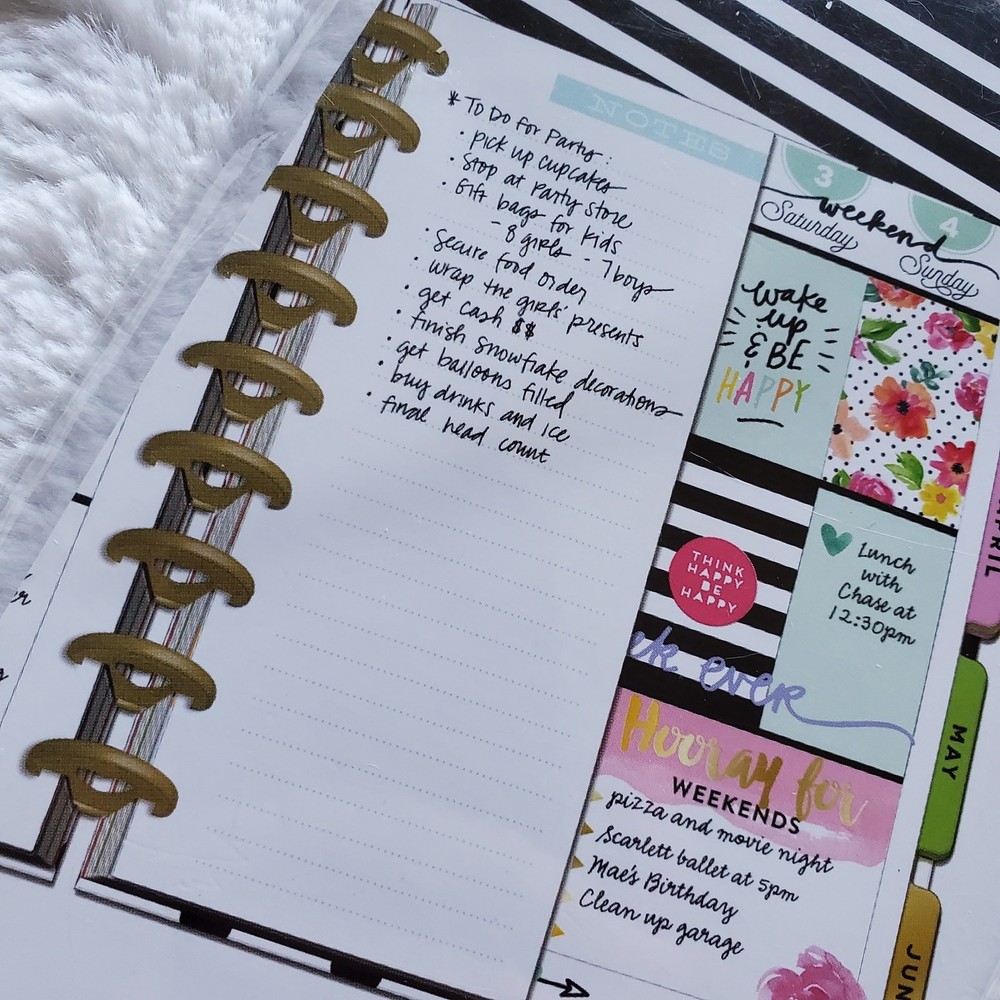 NOTES
* To Do for Party:
• pick up cupcakes
• Stop at Party Store
• Gift bags for kids
- 8 girls - 7 boys
• Secure food order
• wrap the girls' presents
• get cash $$
• finish snowflake decorations
• get balloons filled
• buy drinks and ice
• final head count
3
4
weekend
Saturday
Sunday
wake
up
& BE
HAPPY
THINK
HAPPY
BE
HAPPY
Lunch
with
Chase at
12:30pm
ek ever
Hooray for
WEEKENDS
pizza and movie night
Scarlett ballet at 5pm
Mae's Birthday
Clean up garage
APRIL
MAY
JUN